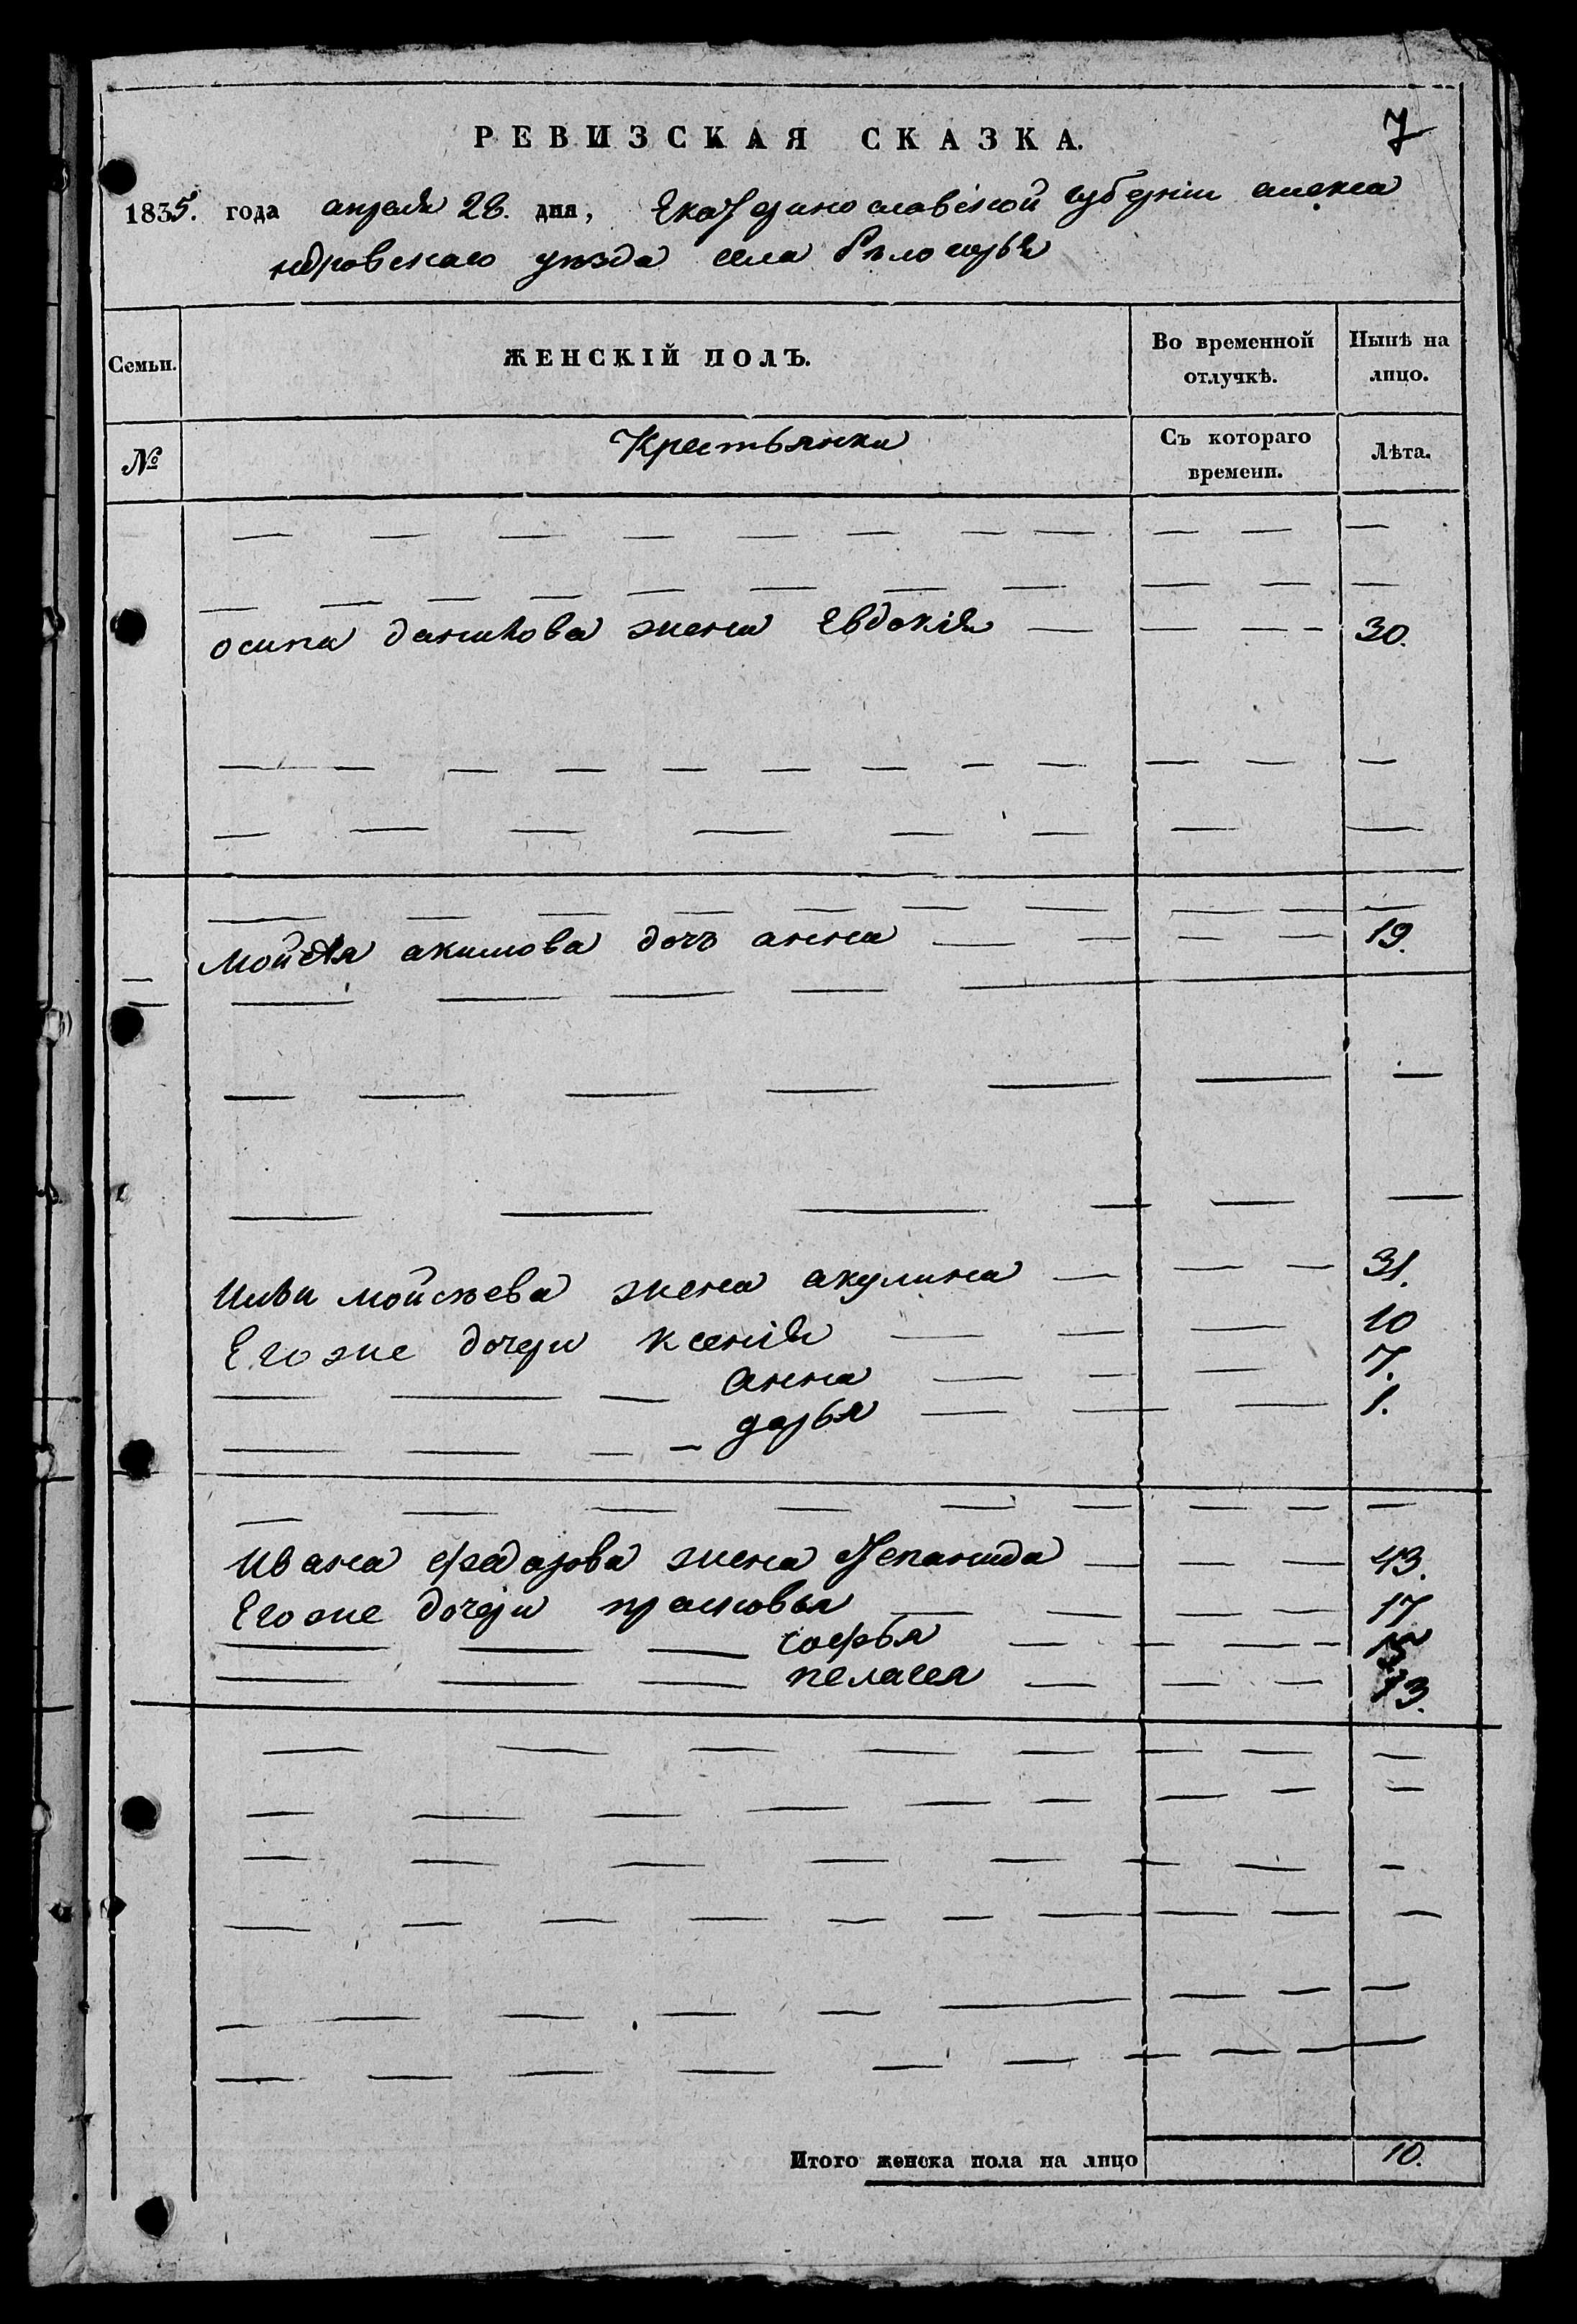 7
РЕВИЗСКАЯ СКАЗКА.
1835. года апреля 28. дня, Екатеринославской губерніи алекса
ндровскаго уезда села белогорья
Семьи.
ЖЕНСКІЙ ПОЛЪ.
Во временной
отлучкѣ.
Нынѣ на
лицо.
№
Крестьянки
Съ котораго
времени.
Лѣта.
осипа данилова жена Евдокія 30.
мойсея акимова дочь анна 19.
мойсѣева жена акулина 31.
Его же дочери ксенія 10
анна 7.
дарья 1.
ивана федорова жена Степанида 43.
Его же дочери прасковья 17
софья 15
пелагея 13.
Итого женска пола на лицо 10.